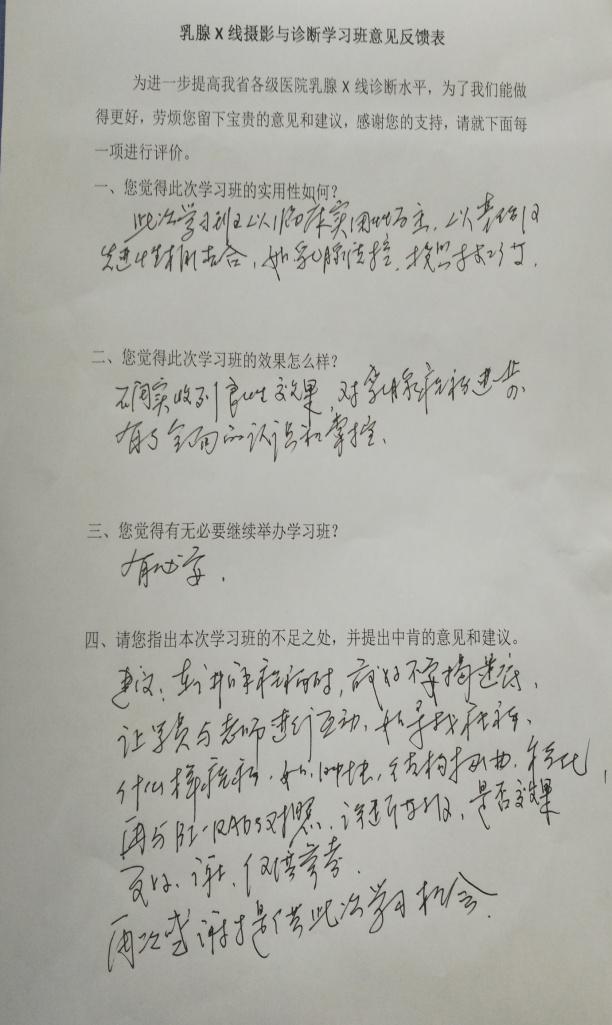 乳腺X线摄影与诊断学习班意见反馈表
为进一步提高我省各级医院乳腺X线诊断水平，为了我们能做
得更好，劳烦您留下宝贵的意见和建议，感谢您的支持，请就下面每
一项进行评价。
一、您觉得此次学习班的实用性如何？
此次学习班以临床实用性为主，以基础及
先进性相结合，如乳腺质控、投照技巧。
二、您觉得此次学习班的效果怎么样？
确实收到良性效果，对乳腺病征进一步
有了全面的认识和掌控。
三、您觉得有无必要继续举办学习班？
有必要。
四、请您指出本次学习班的不足之处，并提出中肯的意见和建议。
建议：在讲课病例时，最好不要揭谜底，
让学员与老师进行互动，如寻找
什么样，如：肿块，结构扭曲，钙化，
再与BI-RADS对照，评进行分级，是否效果
更好，谢谢，仅供参考。
再次感谢提供此次学习机会。